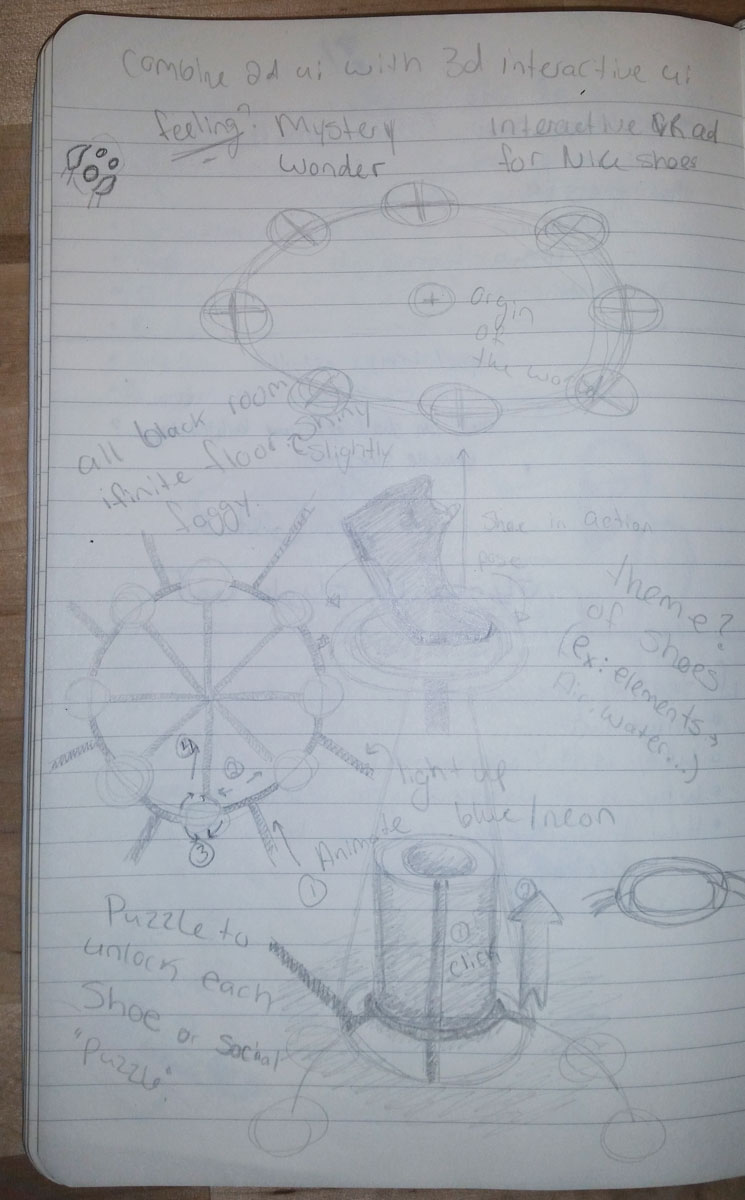 Combine 2d ui with 3d interactive ui
feeling? Mystery
Wonder
Interactive & Rad
for Nike shoes
Orgin
of
the wor
all black room
ifinite floor Shiny
Slightly
foggy.
Shoe in action
pose
theme?
of shoes
(ex: elements,
Air, Water...)
4
2
3
light up
blue/neon
Animate
1
Puzzle to
unlock each
Shoe or Social
"Puzzle".
1
Click
2